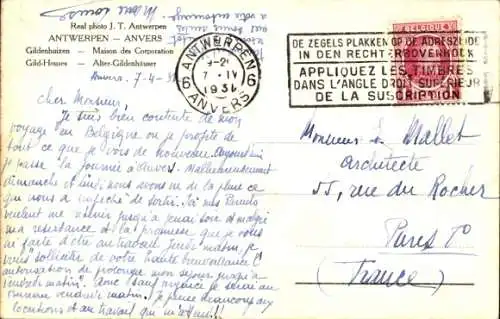 Real photo J. T. Antwerpen
ANTWERPEN - ANVERS
Gildenhuizen - Maison des Corporation
Gild-Houses - Alter-Gildenhäuser
ANTWERPEN
6 6
7 - IV
1934
ANVERS
DE ZEGELS PLAKKEN OP DE ADRESZIJDE
IN DEN RECHTERBOVENHOEK
APPLIQUEZ LES TIMBRES
DANS L'ANGLE DROIT SUPÉRIEUR
DE LA SUSCRIPTION
BELGIQUE
Anvers 7-4-34
Cher Monsieur,
Je suis bien contente de mon
voyage en Belgique où je profite de
tout ce que je vois de nouveau. Aujourd'hui
je passe la journée à Anvers. Malheureusement
dimanche et lundi nous avons eu de la pluie ce
qui nous a empêché de sortir. Ici mes
veulent me retenir jusqu'à jeudi soir et malgré
ma résistance et la promesse que je vous
ai faite d'être au travail jeudi matin, je
sollicite de votre haute bienveillance l'
autorisation de prolonger mon séjour jusqu'à
vendredi matin. Donc sauf avis je serai au
bureau vendredi matin. Je pense beaucoup aux
locations et au travail qui m'attend !!!
Monsieur Mallet
Architecte
55, rue du Rocher
Paris
(France)